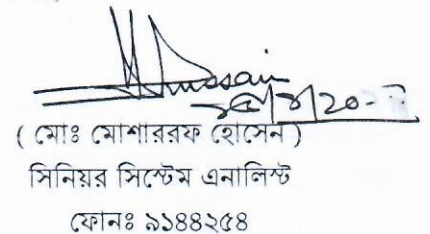 ( মোঃ মোশাররফ হোসেন )
সিনিয়র সিস্টেম এনালিস্ট
ফোনঃ ৯১৪৪২৫৪